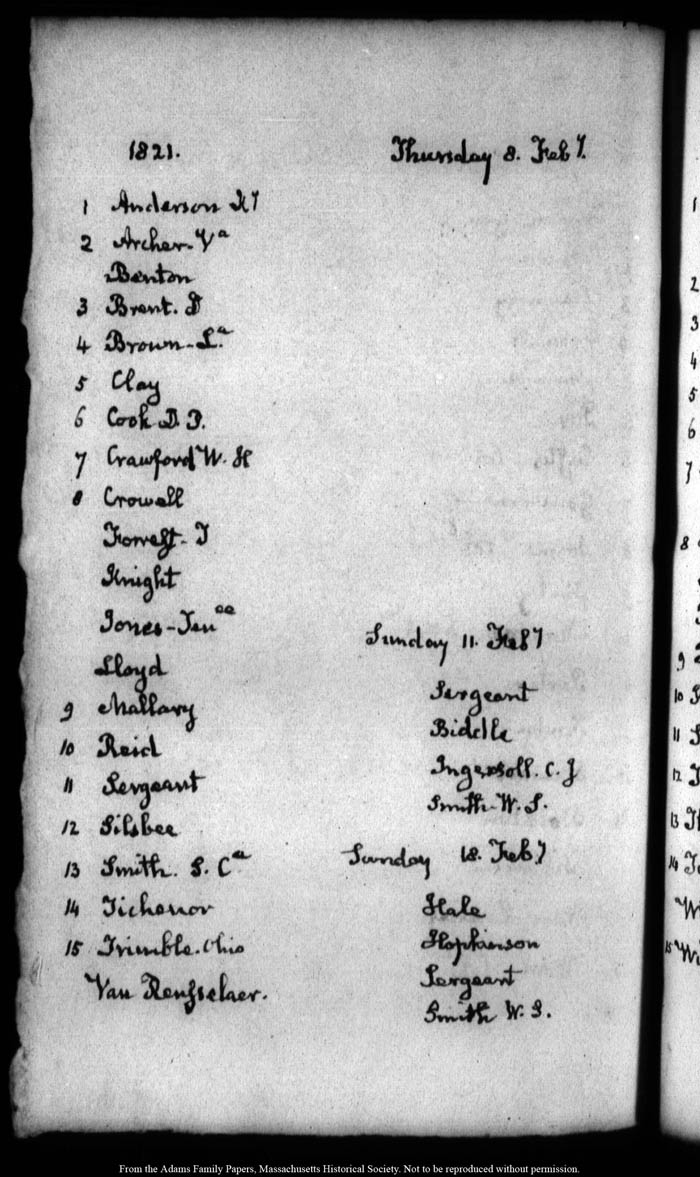 1821. Thursday 8. Feby.
1 Anderson Ky
2 Archer. Va
Benton
3 Brent. D
4 Brown-La.
5 Clay
6 Cook D. P.
7 Crawford W. H
8 Crowell
Forrest. T
Knight
Jones-Tenee
Lloyd
9 Mallary
10 Reid
11 Sergeant
12 Silsbee
13 Smith. S. Ca
14 Tichenor
15 Trimble. Ohio
Van Rensselaer.
Sunday 11. Feby
Sergeant
Biddle
Ingersoll. C. J
Smith W. S.
Sunday 18. Feby
Hale
Hopkinson
Sergeant
Smith W. S.
1
2
3
4
5
6
7
8
9
10
11
12
13
14
15
From the Adams Family Papers, Massachusetts Historical Society. Not to be reproduced without permission.